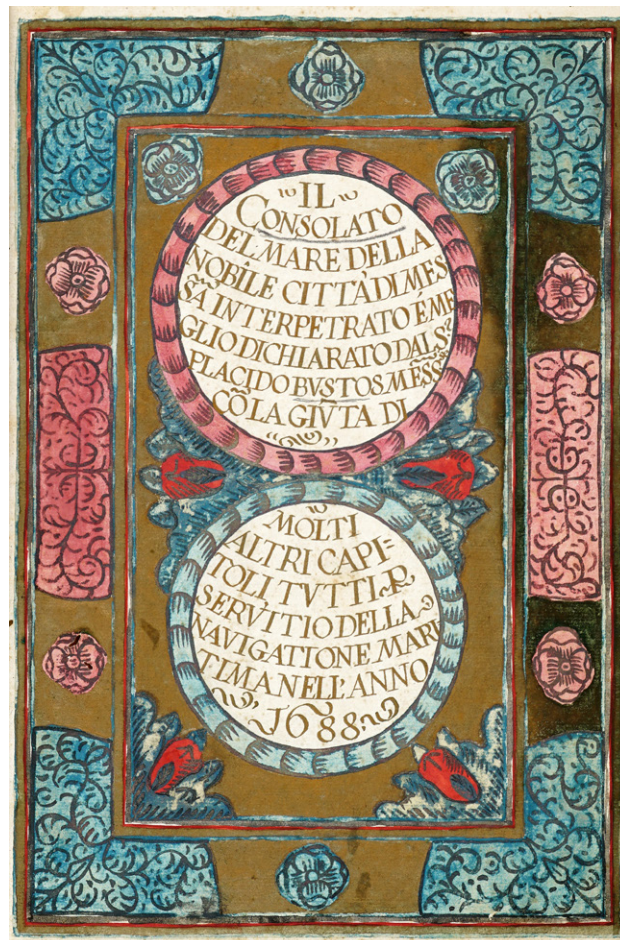 IL
CONSOLATO
DEL MARE DELLA
NOBILE CITTÀ DI MES
S̃A INTERPETRATO É ME
GLIO DICHIARATO DAL S.
PLACIDO BVSTOS MẼSS.
CÕ LA GIṼTA DI
MOLTI
ALTRI CAPI-
TOLI TVTTI
SERVITIO DELLA
NAVIGATIONE MARI
TIMA NELL'ANNO
1688